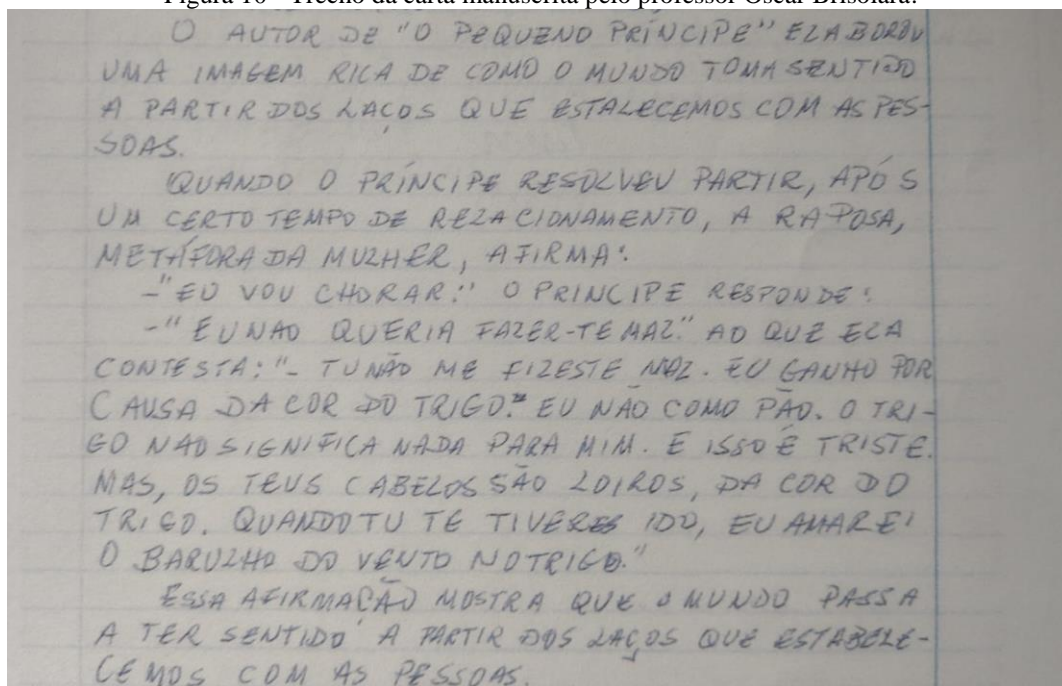 Figura 16 – Trecho da carta manuscrita pelo professor Oscar Brisolara.
O AUTOR DE "O PEQUENO PRÍNCIPE" ELABOROU
UMA IMAGEM RICA DE COMO O MUNDO TOMA SENTIDO
A PARTIR DOS LAÇOS QUE ESTALECEMOS COM AS PES-
SOAS.
QUANDO O PRÍNCIPE RESOLVEU PARTIR, APÓS
UM CERTO TEMPO DE RELACIONAMENTO, A RAPOSA,
METÁFORA DA MULHER, AFIRMA:
-"EU VOU CHORAR." O PRINCIPE RESPONDE:
-"EU NAO QUERIA FAZER-TE MAL." AO QUE ELA
CONTESTA: "- TU NÃO ME FIZESTE MAL. EU GANHO POR
CAUSA DA COR DO TRIGO." EU NÃO COMO PÃO. O TRI-
GO NAO SIGNIFICA NADA PARA MIM. E ISSO É TRISTE.
MAS, OS TEUS CABELOS SÃO LOIROS, DA COR DO
TRIGO. QUANDO TU TE TIVERES IDO, EU AMAREI
O BARULHO DO VENTO NO TRIGO."
ESSA AFIRMAÇÃO MOSTRA QUE O MUNDO PASSA
A TER SENTIDO A PARTIR DOS LAÇOS QUE ESTABELE-
CEMOS COM AS PESSOAS.